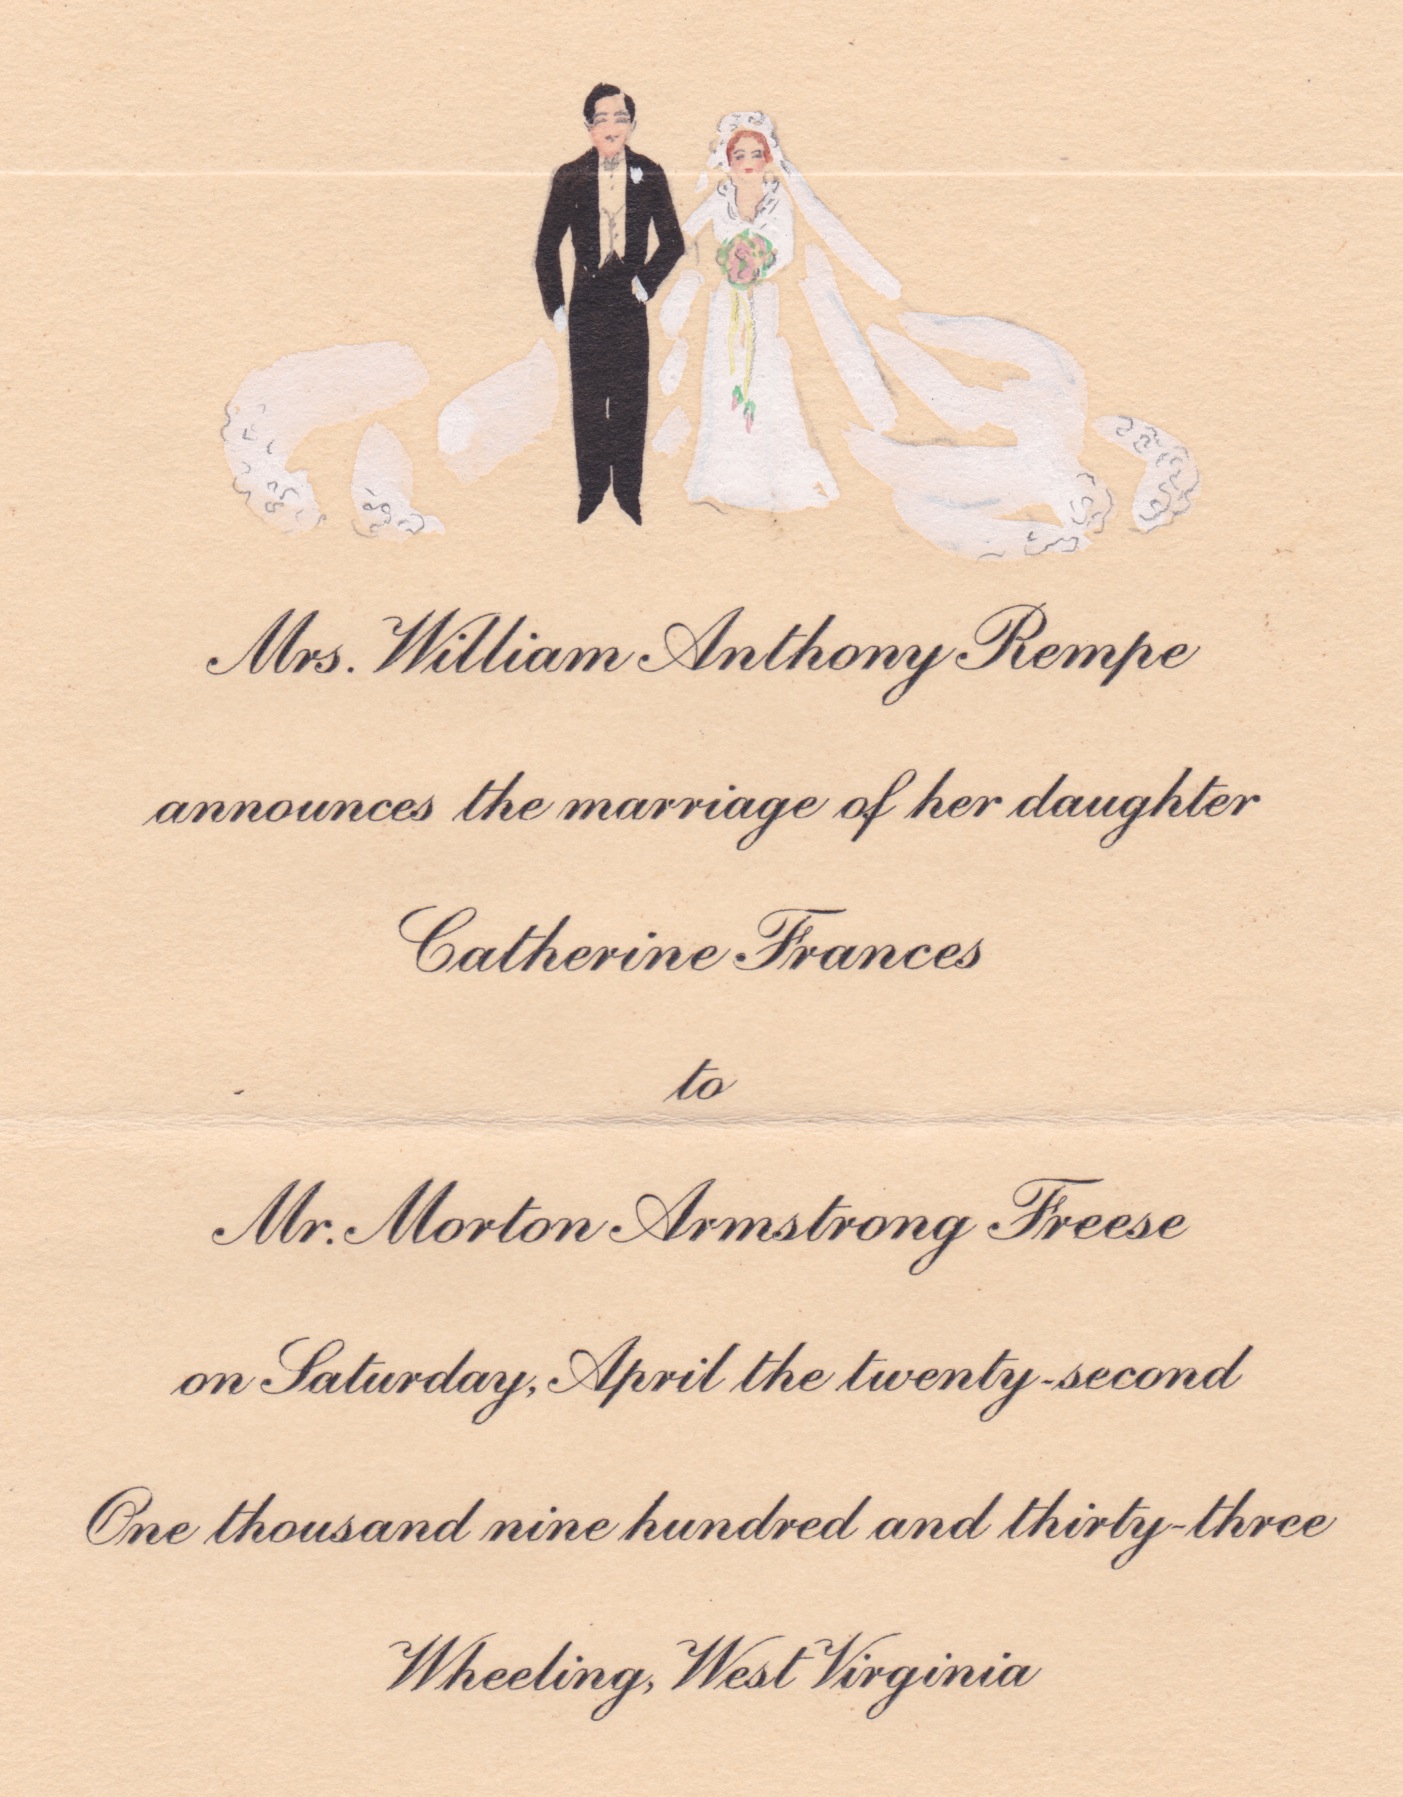 Mrs. William Anthony Rempe
announces the marriage of her daughter
Catherine Frances
to
Mr. Morton Armstrong Freese
on Saturday, April the twenty-second
One thousand nine hundred and thirty-three
Wheeling, West Virginia